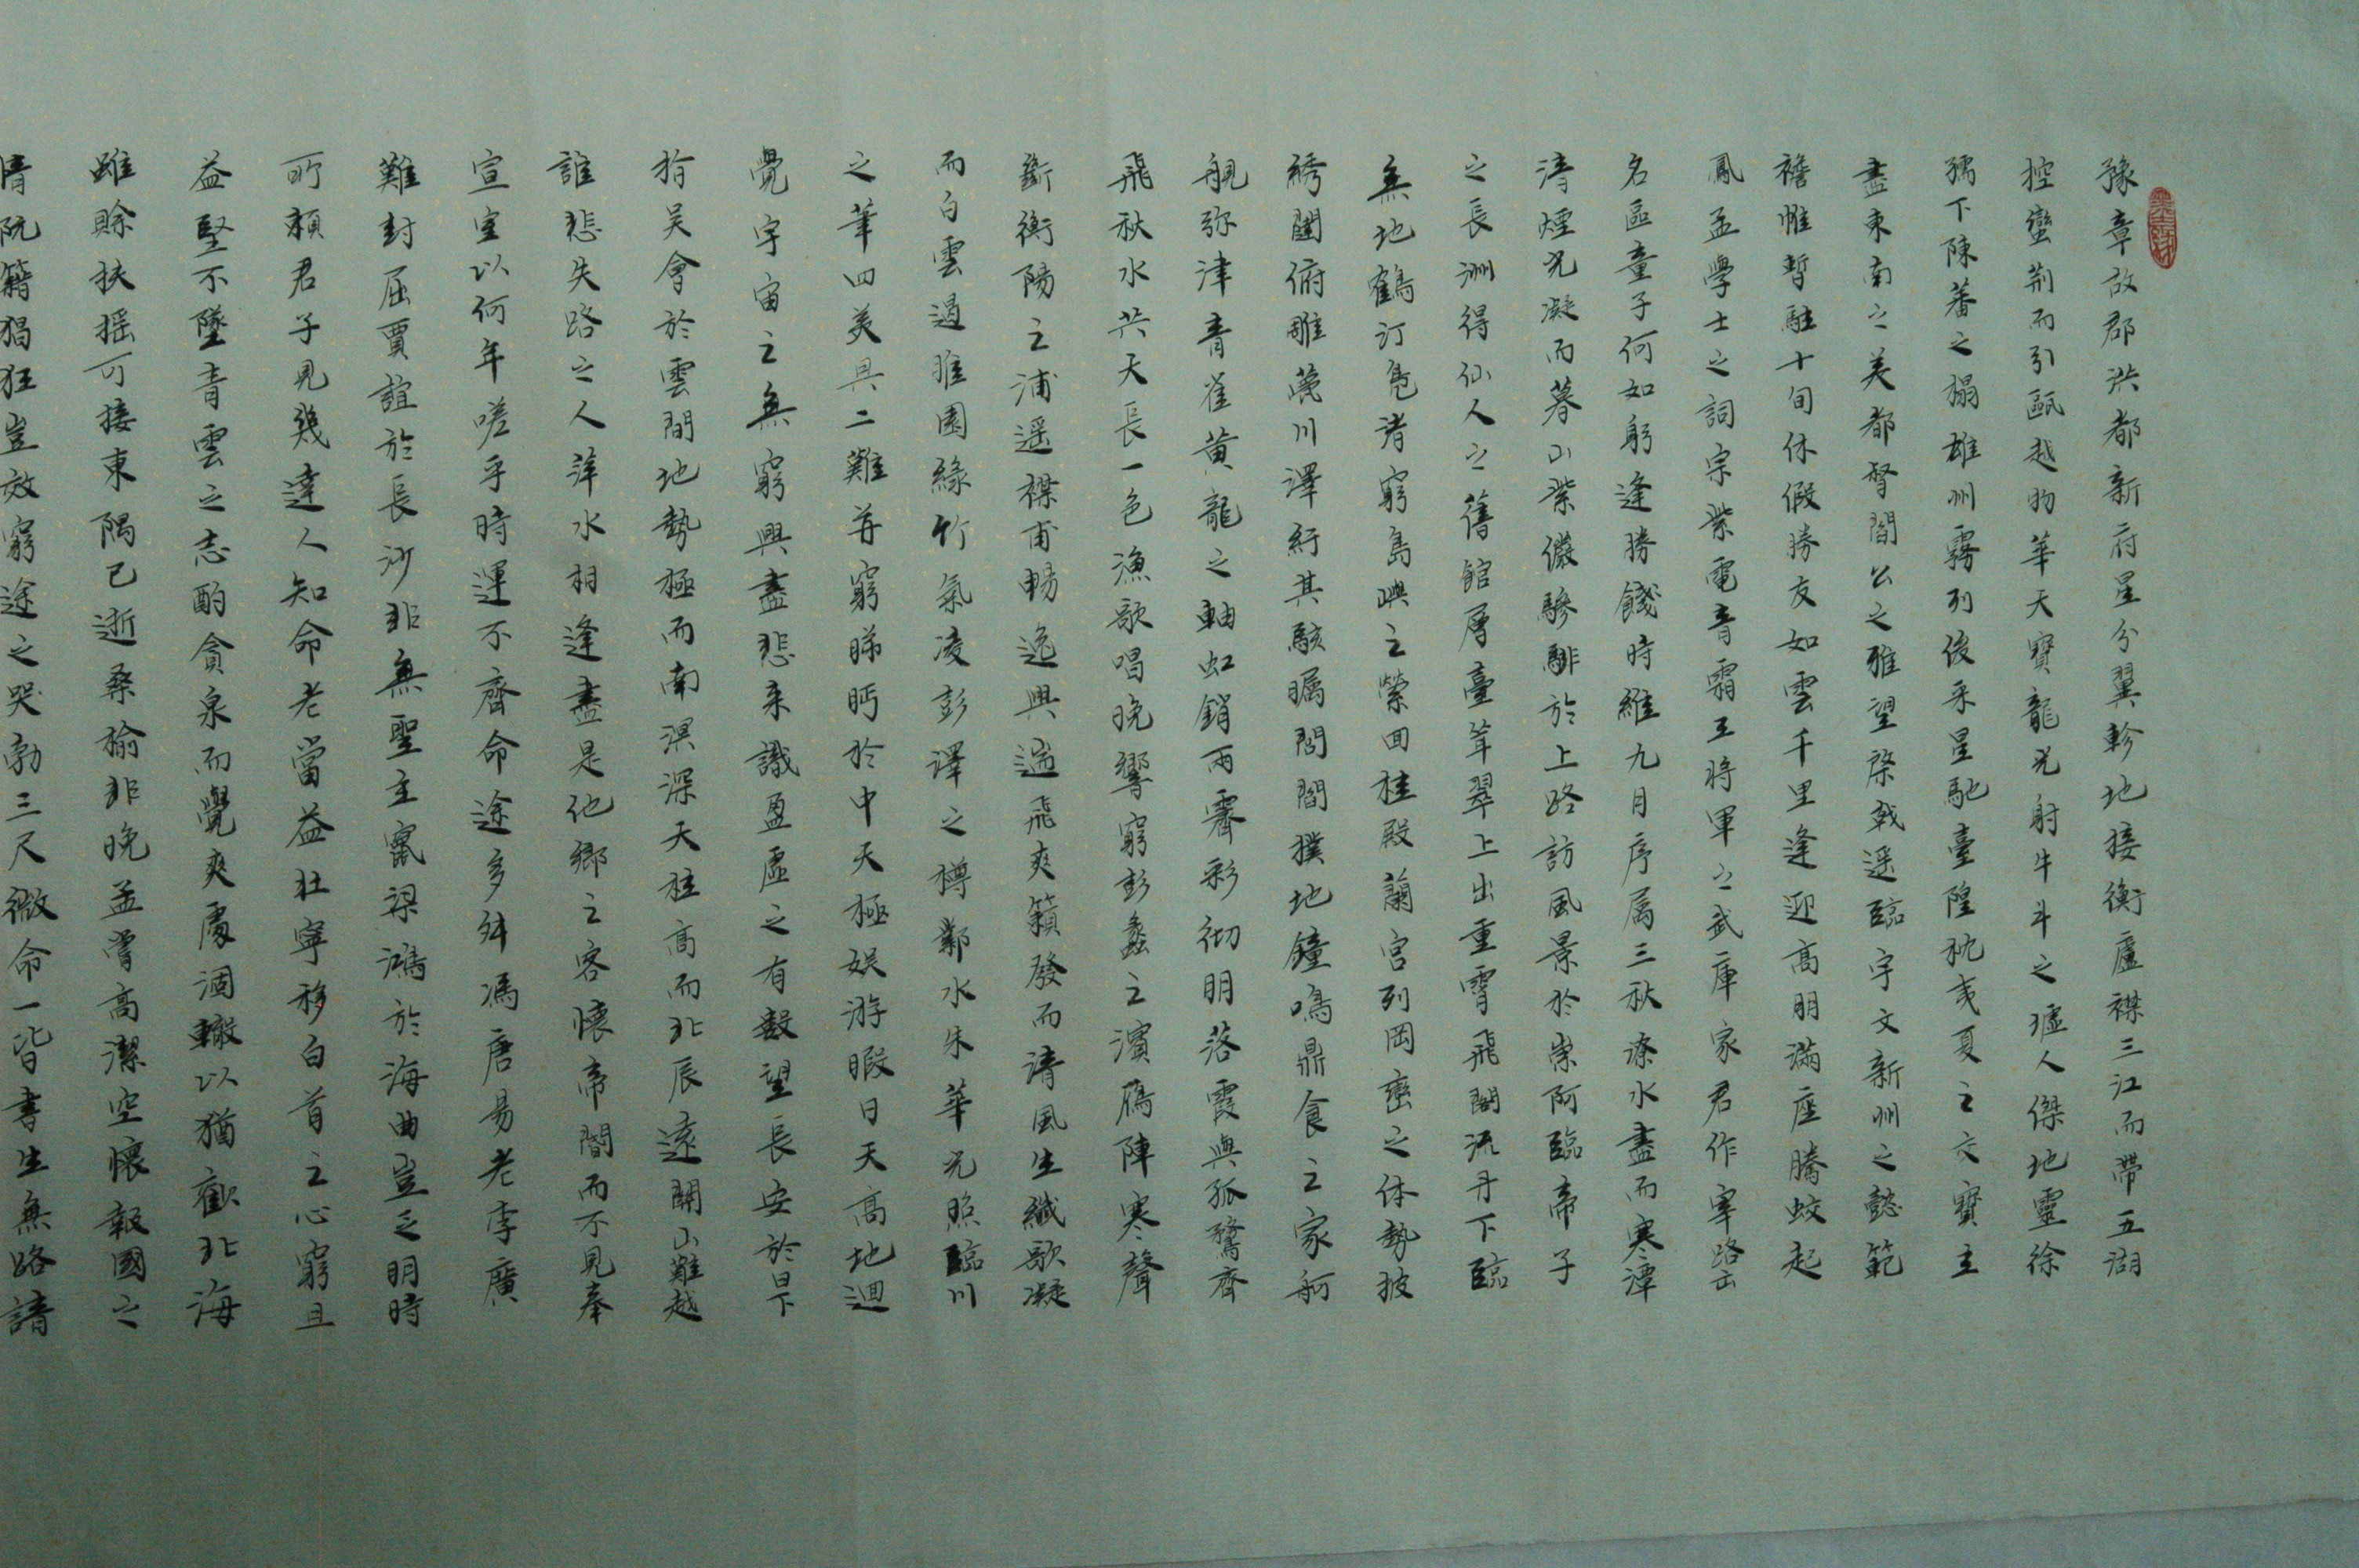 豫章故郡洪都新府星分翼軫地接衡廬襟三江而帶五湖
控蠻荆而引甌越物華天寶龍光射牛斗之墟人傑地靈徐
孺下陳蕃之榻雄州霧列俊采星馳臺隍枕夷夏之交賓主
盡東南之美都督閻公之雅望棨戟遥臨宇文新州之懿範
襜帷暫駐十旬休假勝友如雲千里逢迎高朋滿座騰蛟起
鳳孟學士之詞宗紫電青霜王將軍之武庫家君作宰路出
名區童子何知躬逢勝餞時維九月序属三秋潦水盡而寒潭
清煙光凝而暮山紫儼驂騑於上路訪風景於崇阿臨帝子
之長洲得仙人之舊館層臺聳翠上出重霄飛閣流丹下臨
無地鶴汀鳧渚窮島嶼之縈回桂殿蘭宫列岡巒之体勢披
綉闥俯雕甍川澤紆其駭矚閭閻撲地鐘鳴鼎食之家舸
艦弥津青雀黄龍之軸虹銷雨霽彩彻明落霞與孤鶩齊
飛秋水共天長一色漁歌唱晚響窮彭蠡之濱雁陣寒聲
斷衡陽之浦遥襟甫暢逸興遄飛爽籟發而清風生纖歌凝
而白雲遏睢園緣竹氣凌彭澤之樽鄴水朱華光照臨川
之筆四美具二難并窮睇眄於中天極娱游暇日天高地迥
覺宇宙之無窮興盡悲来識盈虚之有數望長安於日下
指吴會於雲間地勢極而南溟深天柱高而北辰遠關山難越
誰悲失路之人萍水相逢盡是他鄉之客懷帝閽而不見奉
宣室以何年嗟乎時運不齊命途多舛馮唐易老李廣
難封屈賈誼於長沙非無聖主竄梁鴻於海曲豈乏明時
所賴君子見幾達人知命老當益壯寧移白首之心窮且
益堅不墜青雲之志酌貪泉而覺爽處涸轍以猶歡北海
雖賒扶摇可接東隅已逝桑榆非晚孟嘗高潔空懷報國之
情阮籍猖狂豈效窮途之哭勃三尺微命一皆書生無路請